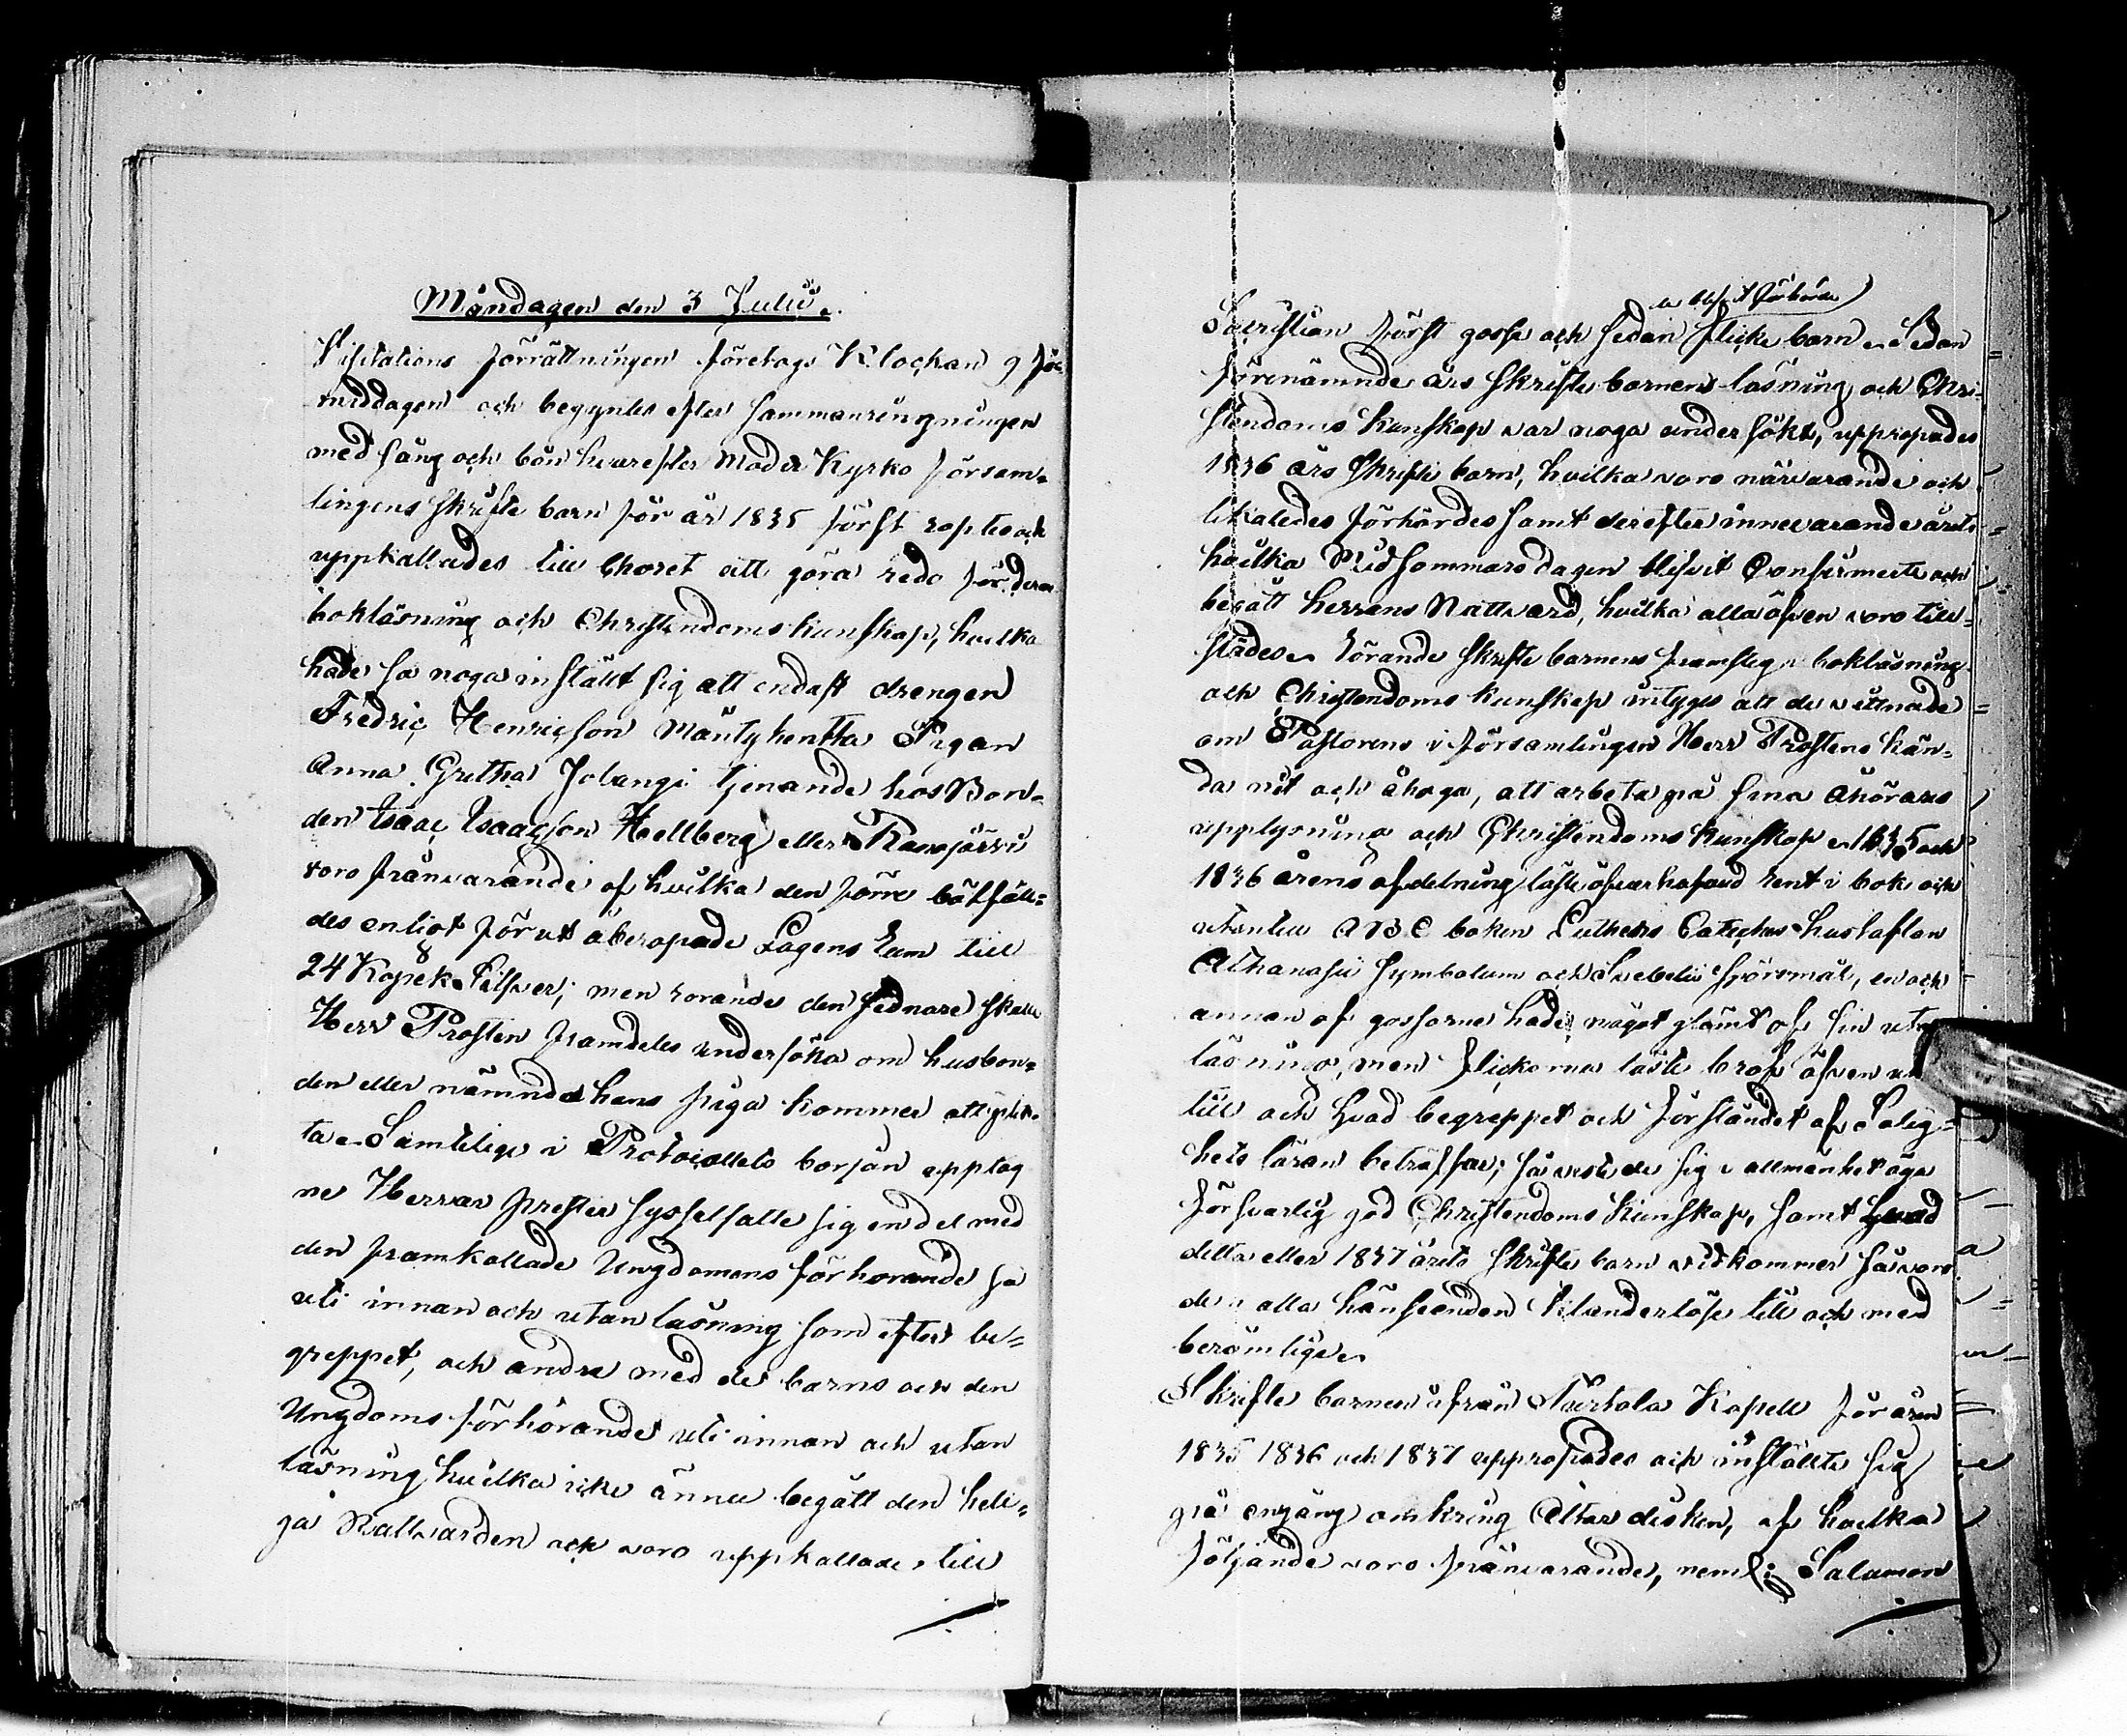 Måndagen den 3 Julii.
Visitations förrättningen företogs Klockan 9 för
middagen och begyntes efter sammanringningen
med sång och bön hvarefter Moder Kyrko försam-
lingens skrifte barn för år 1835 först roptes och
uppkallades till Choret att göra redo för deras
bokläsning och Christendoms kunskap, hvilka
hade så noga instält sig att endast drengen
Fredric Henricson Mäntyhentta Pigan
Anna Gretha Jolangi tjenande hos Bon-
den Isaac Isaacson Hellberg eller Ranojärvi
voro frånvarande af hvilka den förre bötfäll-
des enligt förut åberopade Lagens Rum till
24 Kopek Silfver; men rörande den sednare skulle
Herr Prosten framdeles undersöka om husbon-
den eller nämnde hans piga kommer att plik-
ta. Samtelige i Protocollets början upptag
ne Herrar Prester sysselsatte sig endel med
den framkallade Ungdomens förhörande så
uti innan och utan läsning som efter be-
greppet, och andra med de barns och den
Ungdoms förhörande uti innan och utan
läsning hvilka icke ännu begått den heli-
ga Nattvarden och voro uppkallade till
blifvit förhörda
Sacristian först gosse och sedan flicke barn. Sedan
förenämnde års skrifte barnens läsning och Chri-
stendoms Kunskap var noga undersökt, uppropades
1836 års skrifte barn, hvilka voro närvarande och
likaledes förhördes samt derefter innevarande årets
hvilka Midsommars dagen blifvit Confirmerte och
begått Herrans Nattvard, hvilka alla äfven voro till-
städes. Rörande skrifte barnens framsteg i bokläsning
och Christendoms kunskap intyges att de vittnade
om Pastorens i församlingen Herr Prostens kän-
da nit och åhoga, att arbeta på sina Åhörares
upplysning och Christendoms kunskap. 1835 och
1836 årens afdelning läste öfverhufvud rent i bok och
utantill ABC boken Lutheri Cateches hustaflan
Athanasii Symbolum och Svebelii spörsmål, en och
annan af gossarne hade något glömt af sin utan
läsning, men flickorna läste braf äfven utan
till och hvad begreppet och förståndet af Salig-
hets läran beträffar; så viste de sig i allmänhet äga
försvarlig god Christendoms Kunskap, samt hvad
detta eller 1837 årets skrifte barn vidkommer så voro
de i alla hänseenden klanderlöse till och med
berömlige.
Skrifte barnen ifrån Turtola Kapell för åren
1835 1836 och 1837 uppropades och inställte sig
på engång omkring Altar disken, af hvilka
följande voro frånvarande, neml: Salamon